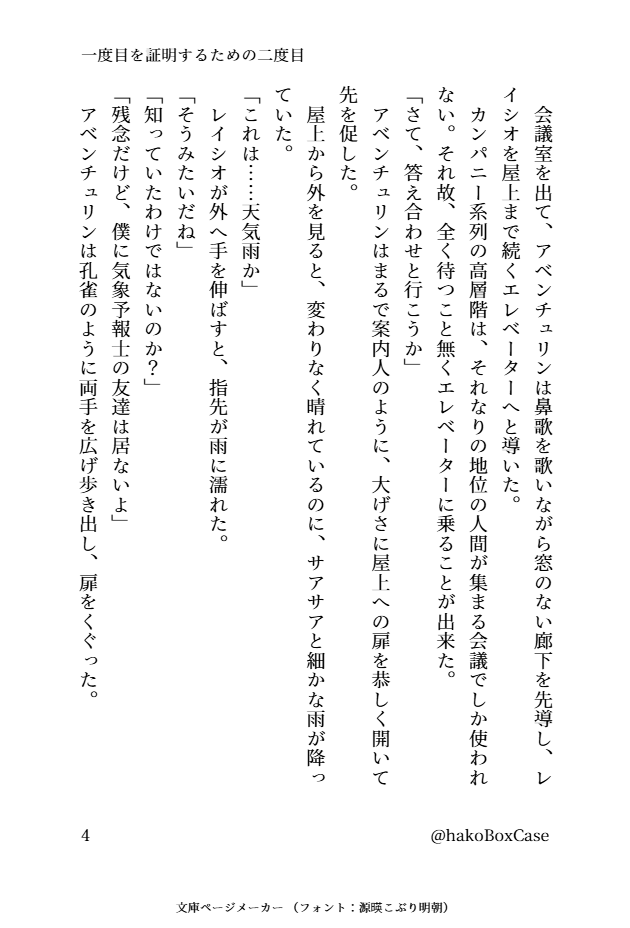 一度目を証明するための二度目
　会議室を出て、アベンチュリンは鼻歌を歌いながら窓のない廊下を先導し、レ
イシオを屋上まで続くエレベーターへと導いた。
　カンパニー系列の高層階は、それなりの地位の人間が集まる会議でしか使われ
ない。それ故、全く待つこと無くエレベーターに乗ることが出来た。
「さて、答え合わせと行こうか」
　アベンチュリンはまるで案内人のように、大げさに屋上への扉を恭しく開いて
先を促した。
　屋上から外を見ると、変わりなく晴れているのに、サアサアと細かな雨が降っ
ていた。
「これは……天気雨か」
　レイシオが外へ手を伸ばすと、指先が雨に濡れた。
「そうみたいだね」
「知っていたわけではないのか？」
「残念だけど、僕に気象予報士の友達は居ないよ」
　アベンチュリンは孔雀のように両手を広げ歩き出し、扉をくぐった。
4
@hakoBoxCase
文庫ページメーカー（フォント：源暎こぶり明朝）